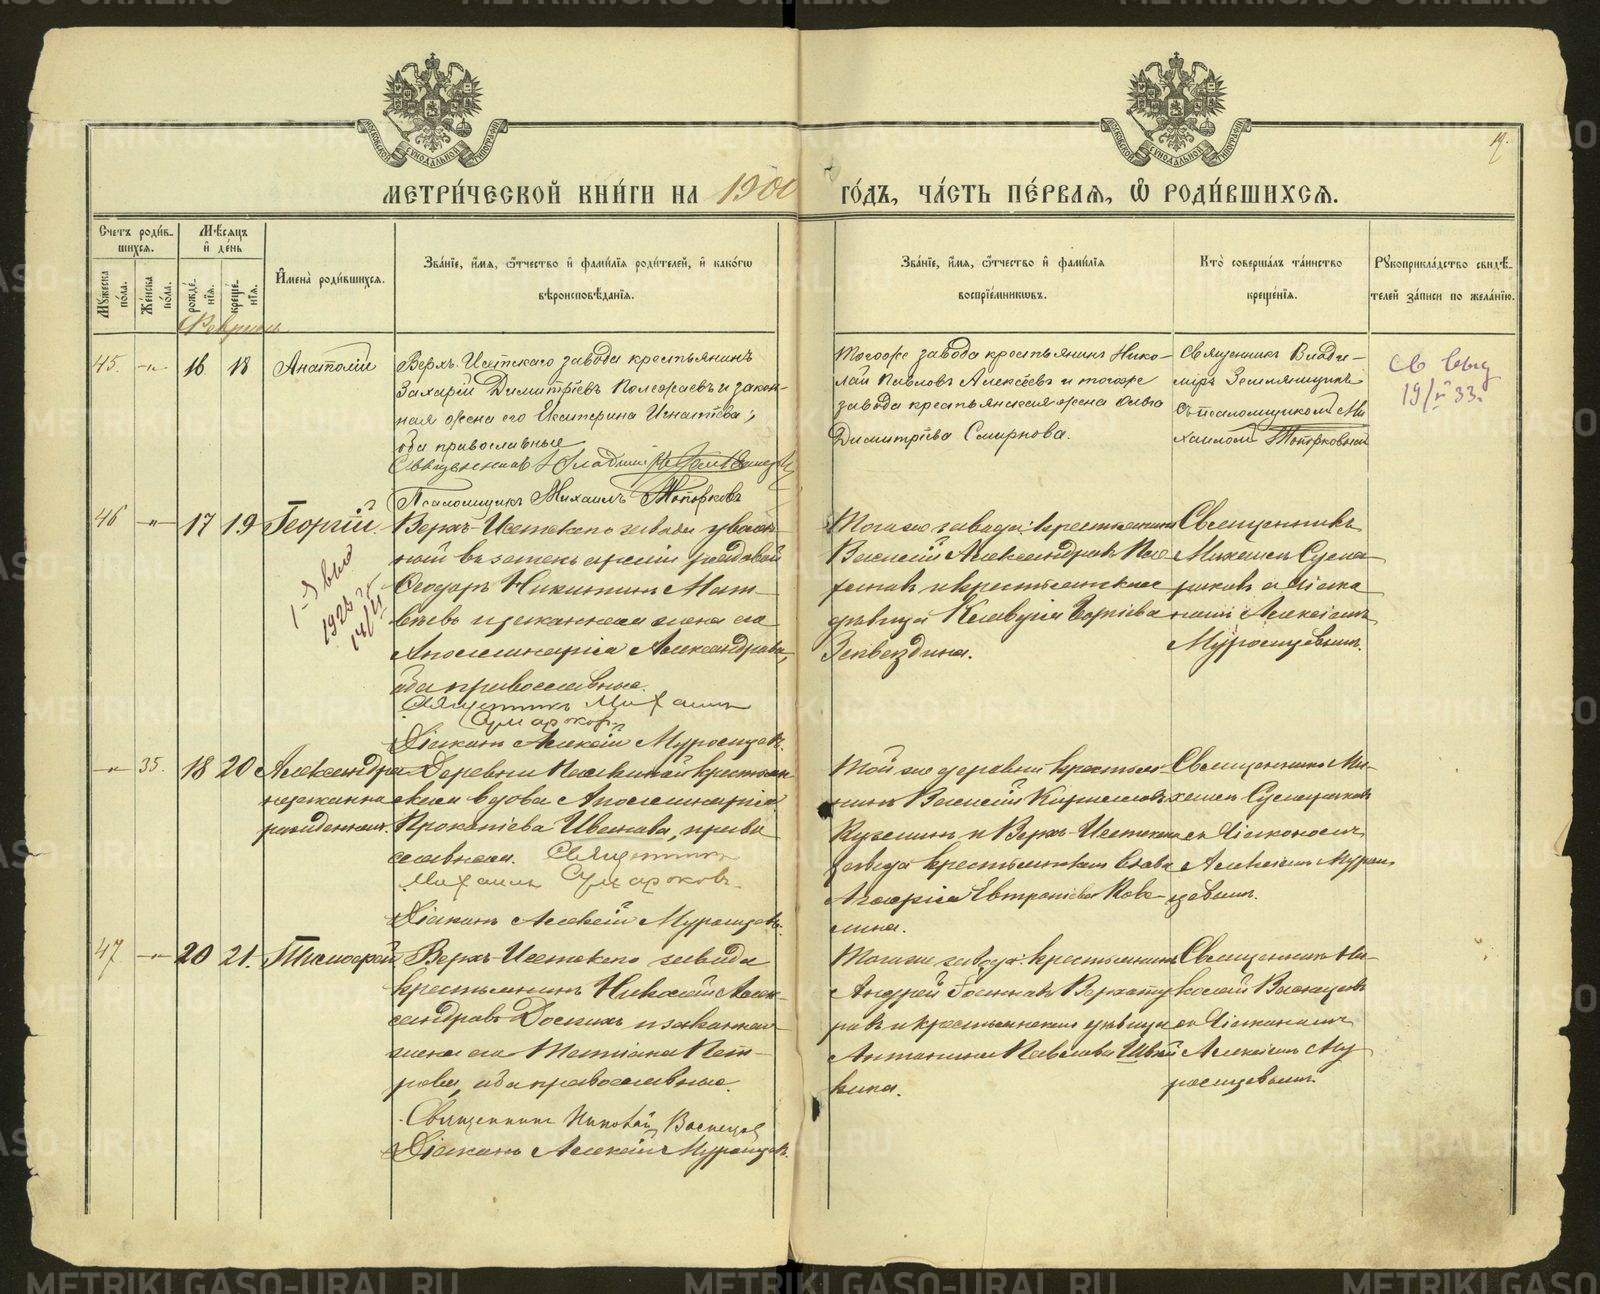 МЕТРИ́ЧЕСКОЙ КНИ́ГИ НА 1900 ГО́ДЪ, ЧА́СТЬ ПЕ́РВАѦ, Ѽ РОДИ́ВШИХСѦ.
Счетъ роди́в-
шихсѧ.
Мѣ́сѧцъ
и҆ де́нь
Мꙋ́жеска
по́ла.
Же́нска
по́ла.
рожде-
нїѧ.
креще-
нїѧ.
И҆мена̀ роди́вшихсѧ.
Зва́нїе, и҆́мѧ, ѻ҆́тчество и҆ фами́лїѧ роди́телей, и҆ како́гѡ
вѣроисповѣ́данїѧ.
Зва́нїе, и҆́мѧ, ѻ҆́тчество и҆ фами́лїѧ
воспрїе́мникѡвъ.
Кто̀ соверша́лъ та́инство
креще́нїѧ.
Рꙋкоприкла́дство свидѣ́-
телей за́писи по жела́нїю.
Февраль
45. -"- 16 18 Анатолій
Верхъ-Исетскаго завода крестьянинъ
Захарій Димитріевъ Полежаевъ и закон-
ная жена его Екатерина Игнатіева;
оба православные
Священникъ Владиміръ Земляницынъ
Псаломщикъ Михаилъ Топорковъ
Тогоже завода крестьянинъ Нико-
лай Павловъ Алексѣевъ и тогоже
завода крестьянская жена Ольга
Димитріева Смирнова.
Священникъ Влади-
міръ Земляницынъ
съ псаломщикомъ Ми-
хаиломъ Топорковымъ
Св выд
19/V 33.
46 -"- 17 19 Георгій
1-е выд
1928 г.
14/VI
Верхъ-Исетскаго завода уволен-
ный въ запасъ арміи рядовой
Ѳеодоръ Никитинъ Мат-
вѣевъ и законная жена его
Аполлинарія Александрова,
оба православные.
Священникъ Михаилъ
Сумароковъ
Діаконъ Алексій Муромцевъ.
Тогоже завода крестьянинъ
Василій Александровъ
и крестьянская
дѣвица Клавдія
Священникъ
Михаилъ Сума-
роковъ съ діако-
номъ Алексіемъ
Муромцевымъ.
-"- 35. 18 20 Александра
незаконно
рожденная.
Деревни крестьян-
ская вдова Аполлинарія
Прокопіева Иванова, право-
славная. Священникъ
Михаилъ Сумароковъ.
Діаконъ Алексій Муромцевъ.
Той же деревни крестья-
нинъ Василій Кирилловъ
Кузьминъ и Верхъ-Исетскаго
завода крестьянская
Евтропіева
Священникъ Ми-
хаилъ Сумароковъ
съ діакономъ
Алексіемъ Муром-
цевымъ.
47 -"- 20 21. Тимофей
Верхъ-Исетскаго завода
крестьянинъ Николай Алек-
сандровъ и законная
жена его Татіана Пет-
рова, оба православные.
Священникъ Николай Васнецов
Діаконъ Алексій Муромцевъ.
Тогоже завода крестьянинъ
Андрей
и крестьянская дѣвица
Антонина Павлова
Священникъ Ни-
колай Васнецовъ
съ діакономъ
Алексіемъ Му-
ромцевымъ.